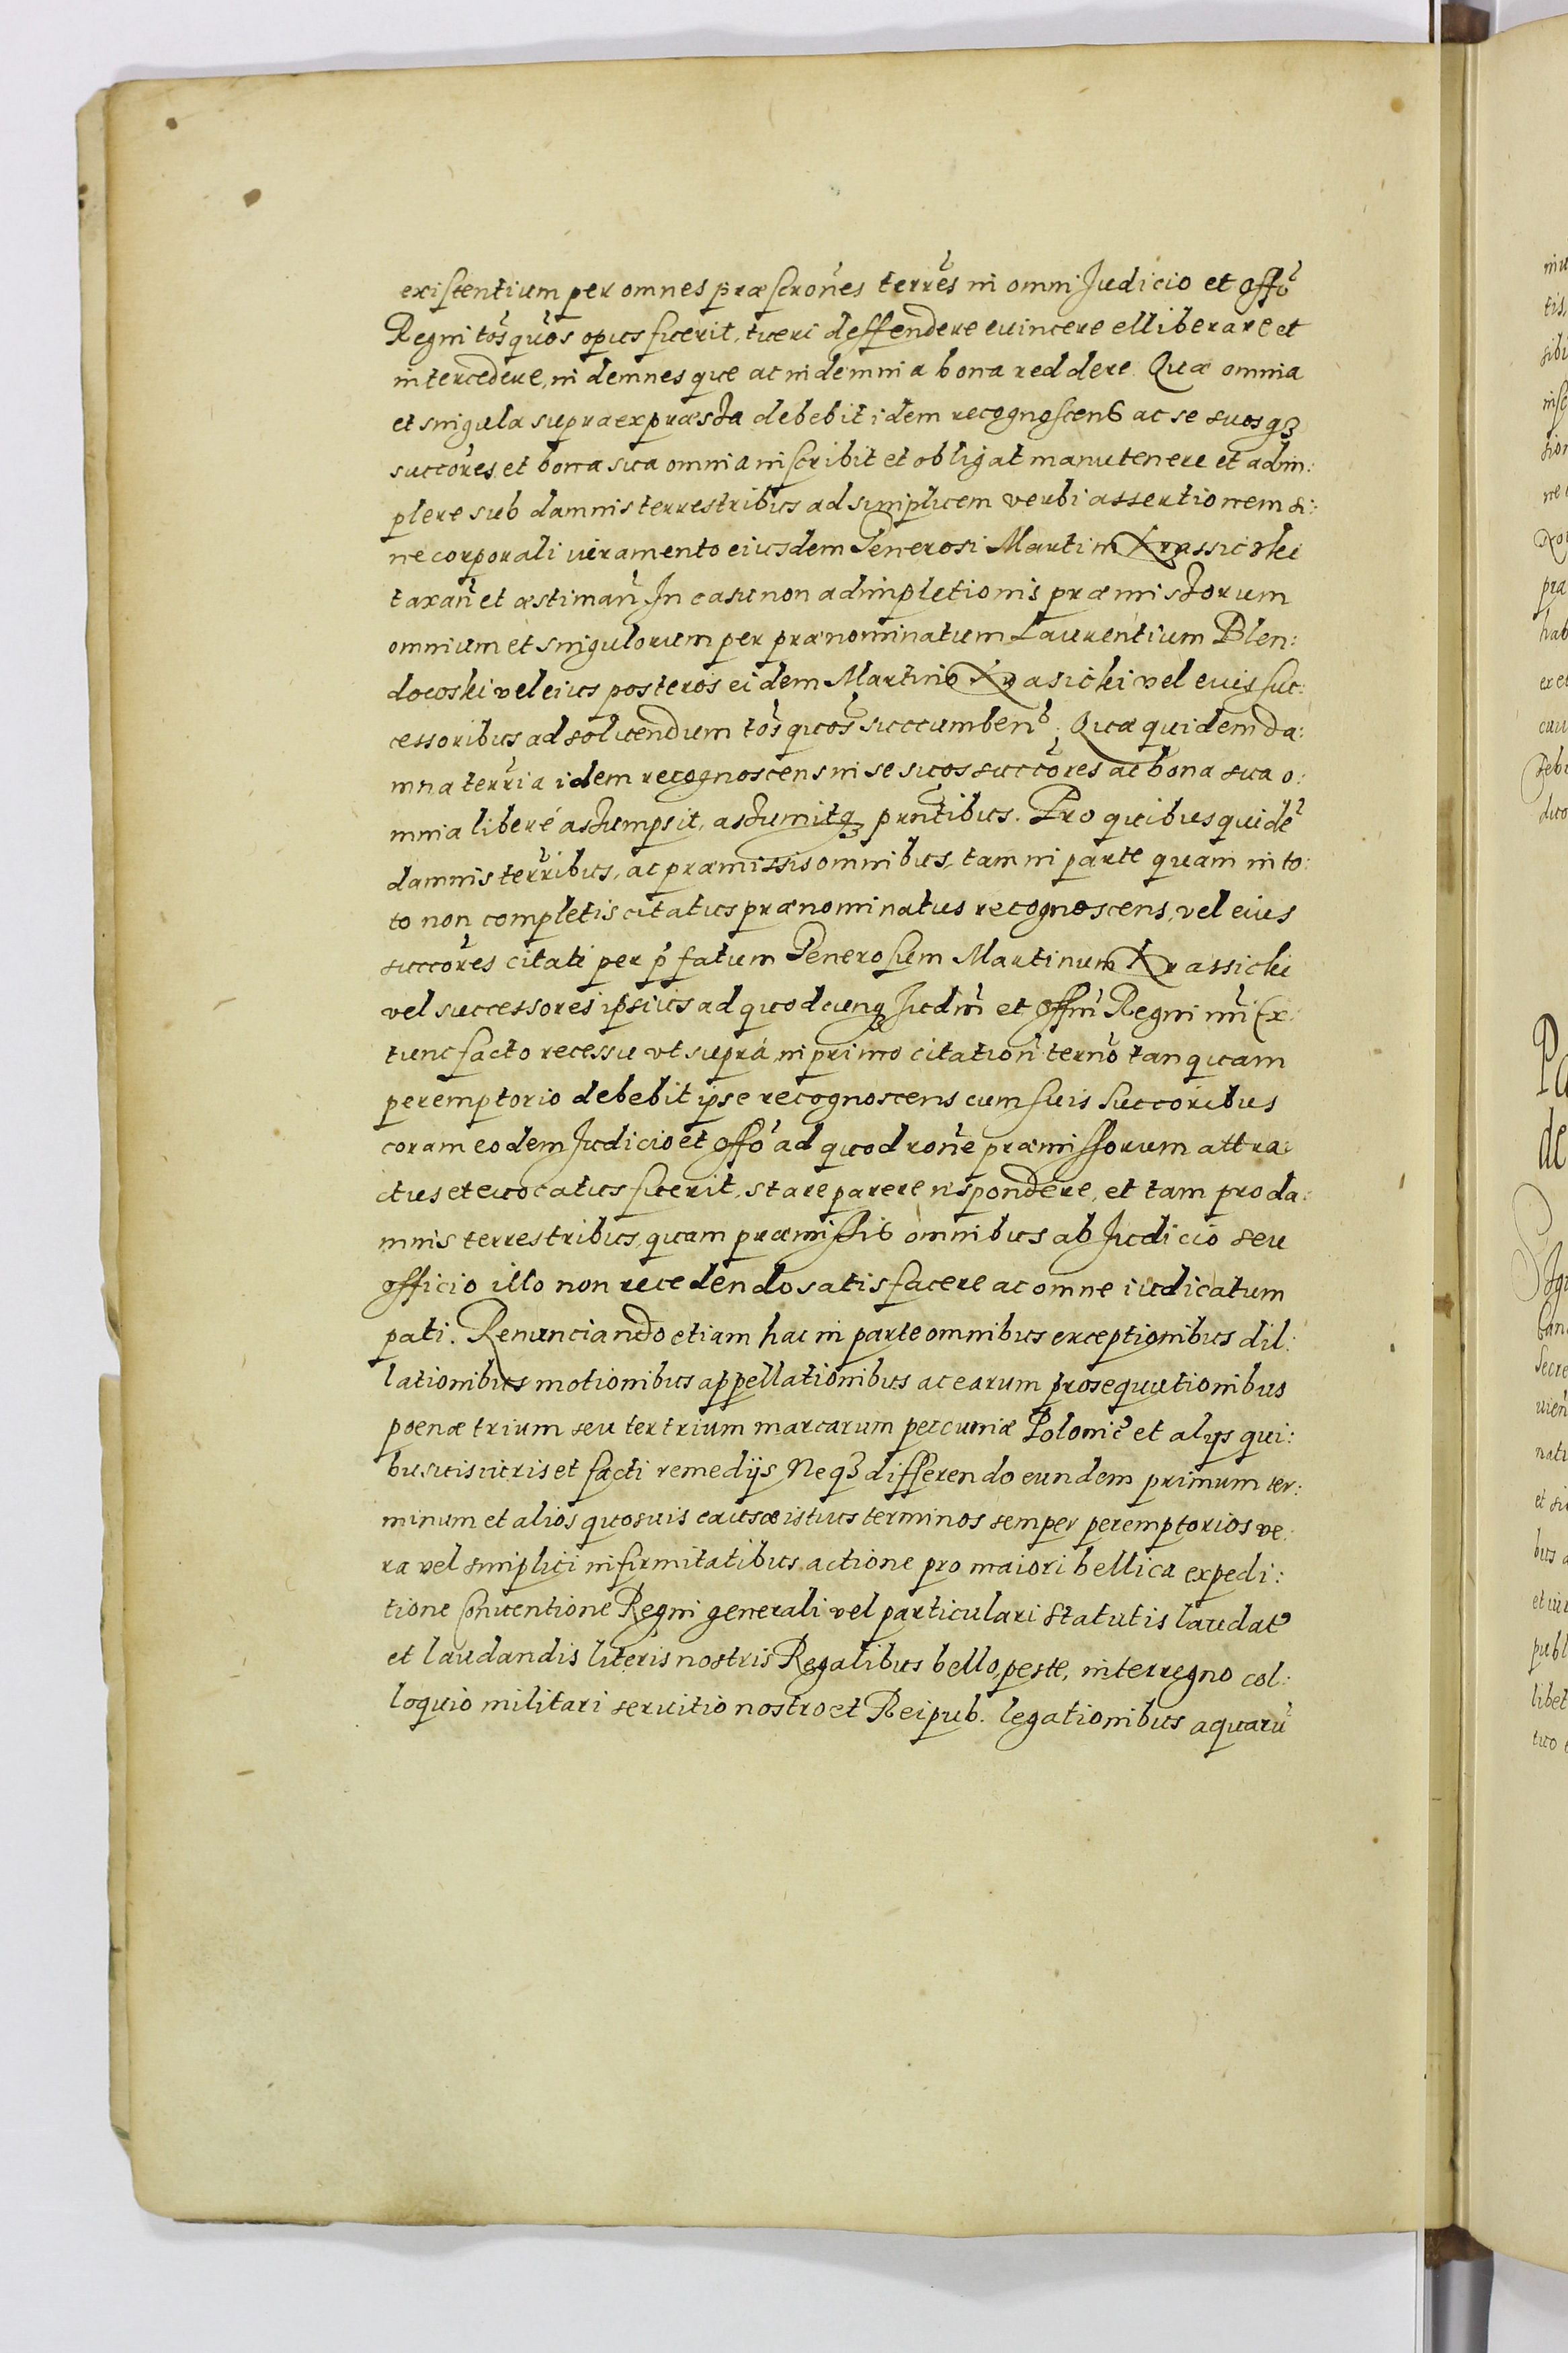 existentium per omnes præscrones terres in omni Judicio et offo
Regni tos quos opus fuerit, tueri deffendere euincere elliberare et
intercedere, indemnesque ac indemnia bona reddere. Quæ omnia
et singula supraexpræssa debebit idem recognoscens ac se suosq3
succores et bona sua omnia inscribit et obligat manutenere et adim:
plere sub damnis terrestribus ad simplicem verbi assertionem si:
ne corporali iuramento eiusdem Generosi Martini Krassicki
taxan et æstiman. In casu non adimpletionis præmissorum
omnium et singulorum per prænominatum Laurentium Blen:
dowski vel eius posteros eidem Martino Krasicki vel euis suc:
cessoribus ad soluendum tos quos succumben; Quæ quidem da:
mna terria idem recognoscens in se suos succores ac bona sua o:
mnia liberé assumpsit, assumitq3 prntibus. Pro quibus quide
damnis terribus, ac præmissis omnibus, tam in parte quam in to:
to non completis citatus prænominatus recognoscens, vel eius
succores citati per p fatum Generosum Martinum Krassicki
vel successores ipsius ad quodcunq3 Judm et offm Regni mi Ex:
tunc facto recessu vt suprá in primo citation terno tanquam
peremptorio debebit ipse recognoscens cum suis succoribus
coram eodem Judicio et offo ad quod rone præmissorum attra:
ctus et euocatus fuerit, stare parere rispondere, et tam pro da:
mnis terrestribus, quam præmissis omnibus ab Judicio seu
officio illo non recedendo satisfacere ac omne iudicatum
pati. Renunciando etiam hac in parte omnibus exceptionibus dil:
lationibus motionibus appellationibus ac earum prosequutionibus
poenæ trium seu ter trium marcarum pecuniæ Polonic et alijs qui:
busuis iuris et facti remedijs Neq3 differendo eundem primum ter:
minum et alios quosuis causæ istius terminos semper peremptorios ve:
ra vel simplici infirmitatibus, actione pro maiori bellica expedi:
tione Conuentione Regni generali vel particulari statutis laudat
et laudandis literis nostris Regalibus bello, peste, interregno col:
loquio militari seruitio nostro et Reipub. legationibus aquaru